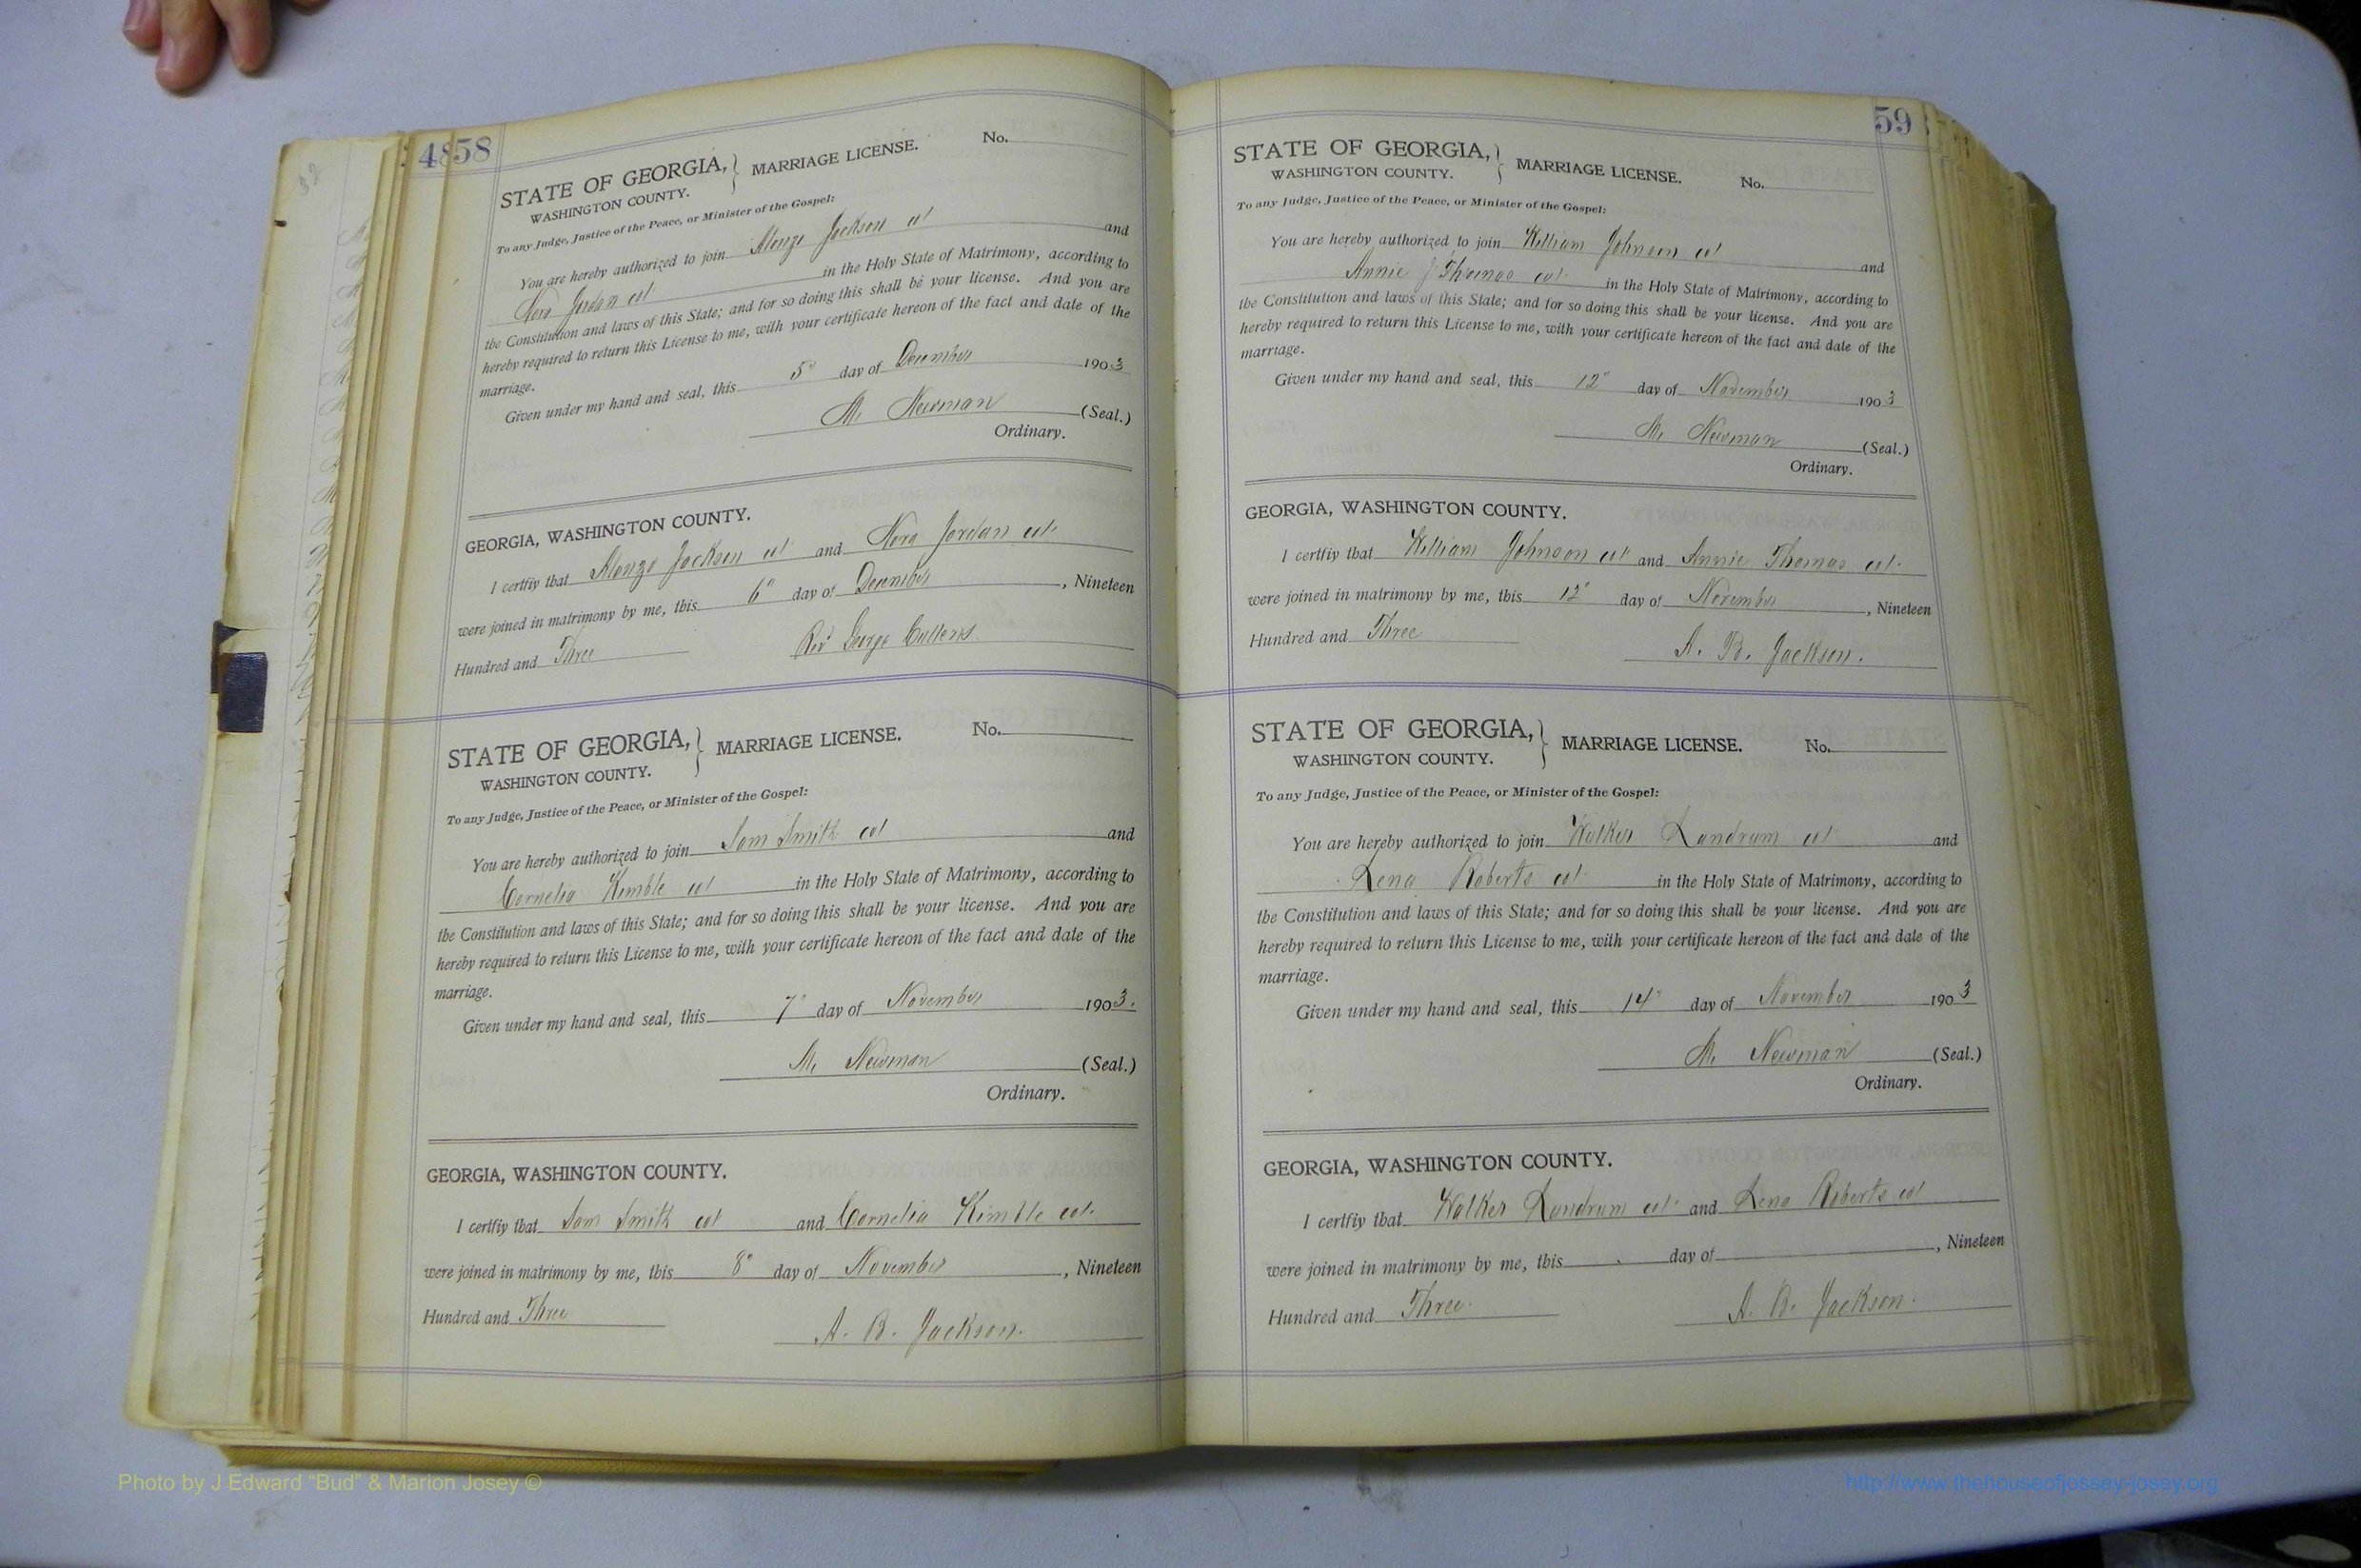 4858
STATE OF GEORGIA, } MARRIAGE LICENSE. No.
WASHINGTON COUNTY.
To any Judge, Justice of the Peace, or Minister of the Gospel:
You are hereby authorized to join Alonzo Jackson col and
Nora Jordan col in the Holy State of Matrimony, according to
the Constitution and laws of this State; and for so doing this shall be your license. And you are
hereby required to return this License to me, with your certificate hereon of the fact and date of the
marriage.
Given under my hand and seal, this 5" day of December 1903
M. Newman (Seal.)
Ordinary.
GEORGIA, WASHINGTON COUNTY.
I certfiy that Alonzo Jackson col and Nora Jordan col.
were joined in matrimony by me, this 6" day of December, Nineteen
Hundred and Three Rev George Cullens
STATE OF GEORGIA, } MARRIAGE LICENSE. No.
WASHINGTON COUNTY.
To any Judge, Justice of the Peace, or Minister of the Gospel:
You are hereby authorized to join Sam Smith col and
Cornelia Kimble col in the Holy State of Matrimony, according to
the Constitution and laws of this State; and for so doing this shall be your license. And you are
hereby required to return this License to me, with your certificate hereon of the fact and date of the
marriage.
Given under my hand and seal, this 7" day of November 1903.
M. Newman (Seal.)
Ordinary.
GEORGIA, WASHINGTON COUNTY.
I certfiy that Sam Smith col and Cornelia Kimble col.
were joined in matrimony by me, this 8" day of November, Nineteen
Hundred and Three A. B. Jackson.
59
STATE OF GEORGIA, } MARRIAGE LICENSE. No.
WASHINGTON COUNTY.
To any Judge, Justice of the Peace, or Minister of the Gospel:
You are hereby authorized to join William Johnson col and
Annie Thomas col. in the Holy State of Matrimony, according to
the Constitution and laws of this State; and for so doing this shall be your license. And you are
hereby required to return this License to me, with your certificate hereon of the fact and date of the
marriage.
Given under my hand and seal, this 12" day of November 1903
M. Newman (Seal.)
Ordinary.
GEORGIA, WASHINGTON COUNTY.
I certfiy that William Johnson col and Annie Thomas col.
were joined in matrimony by me, this 12" day of November, Nineteen
Hundred and Three A. B. Jackson.
STATE OF GEORGIA, } MARRIAGE LICENSE. No.
WASHINGTON COUNTY.
To any Judge, Justice of the Peace, or Minister of the Gospel:
You are hereby authorized to join Walker Landrum col and
Lena Roberts col. in the Holy State of Matrimony, according to
the Constitution and laws of this State; and for so doing this shall be your license. And you are
hereby required to return this License to me, with your certificate hereon of the fact and date of the
marriage.
Given under my hand and seal, this 14" day of November 1903
M. Newman (Seal.)
Ordinary.
GEORGIA, WASHINGTON COUNTY.
I certfiy that Walker Landrum col. and Lena Roberts col
were joined in matrimony by me, this day of , Nineteen
Hundred and Three. A. B. Jackson.
Photo by J Edward "Bud" & Marion Josey ©
http://www.thehouseofjossay-josey.org